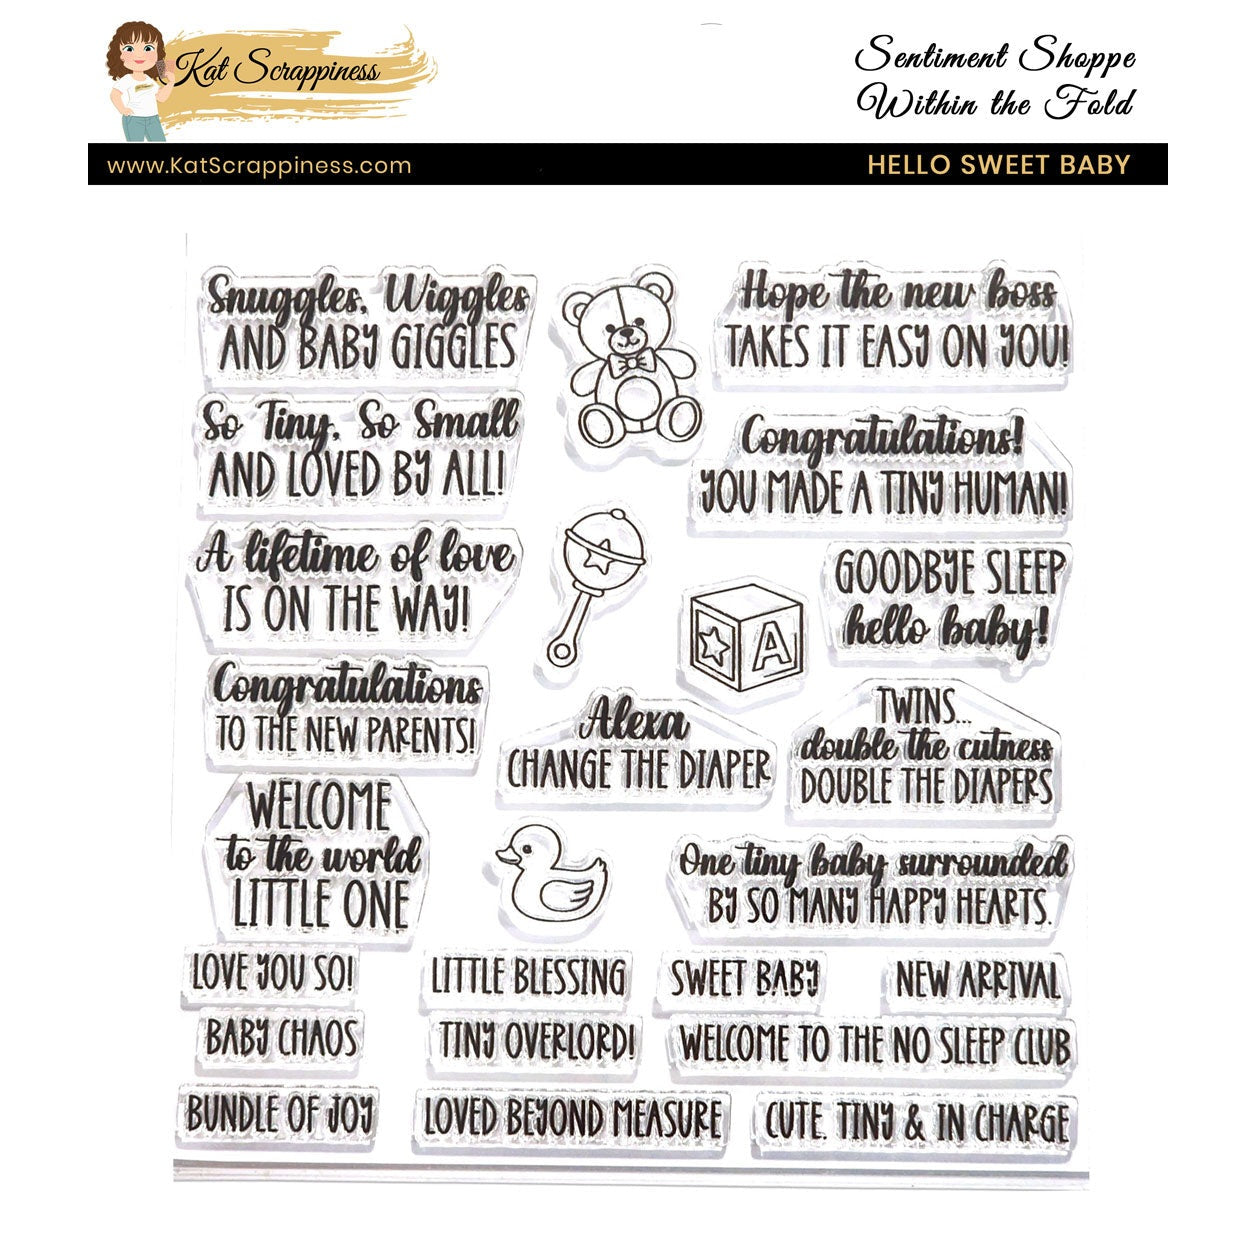 Kat Scrappiness
Sentiment Shoppe
Within the Fold
www.KatScrappiness.com
HELLO SWEET BABY
Snuggles, Wiggles
AND BABY GIGGLES
Hope the new boss
TAKES IT EASY ON YOU!
So Tiny, So Small
AND LOVED BY ALL!
Congratulations!
YOU MADE A TINY HUMAN!
A lifetime of love
IS ON THE WAY!
GOODBYE SLEEP
hello baby!
A
Congratulations
TO THE NEW PARENTS!
Alexa
CHANGE THE DIAPER
TWINS...
double the cutness
DOUBLE THE DIAPERS
WELCOME
to the world
LITTLE ONE
One tiny baby surrounded
BY SO MANY HAPPY HEARTS.
LOVE YOU SO!
LITTLE BLESSING
SWEET BABY
NEW ARRIVAL
BABY CHAOS
TINY OVERLORD!
WELCOME TO THE NO SLEEP CLUB
BUNDLE OF JOY
LOVED BEYOND MEASURE
CUTE, TINY & IN CHARGE